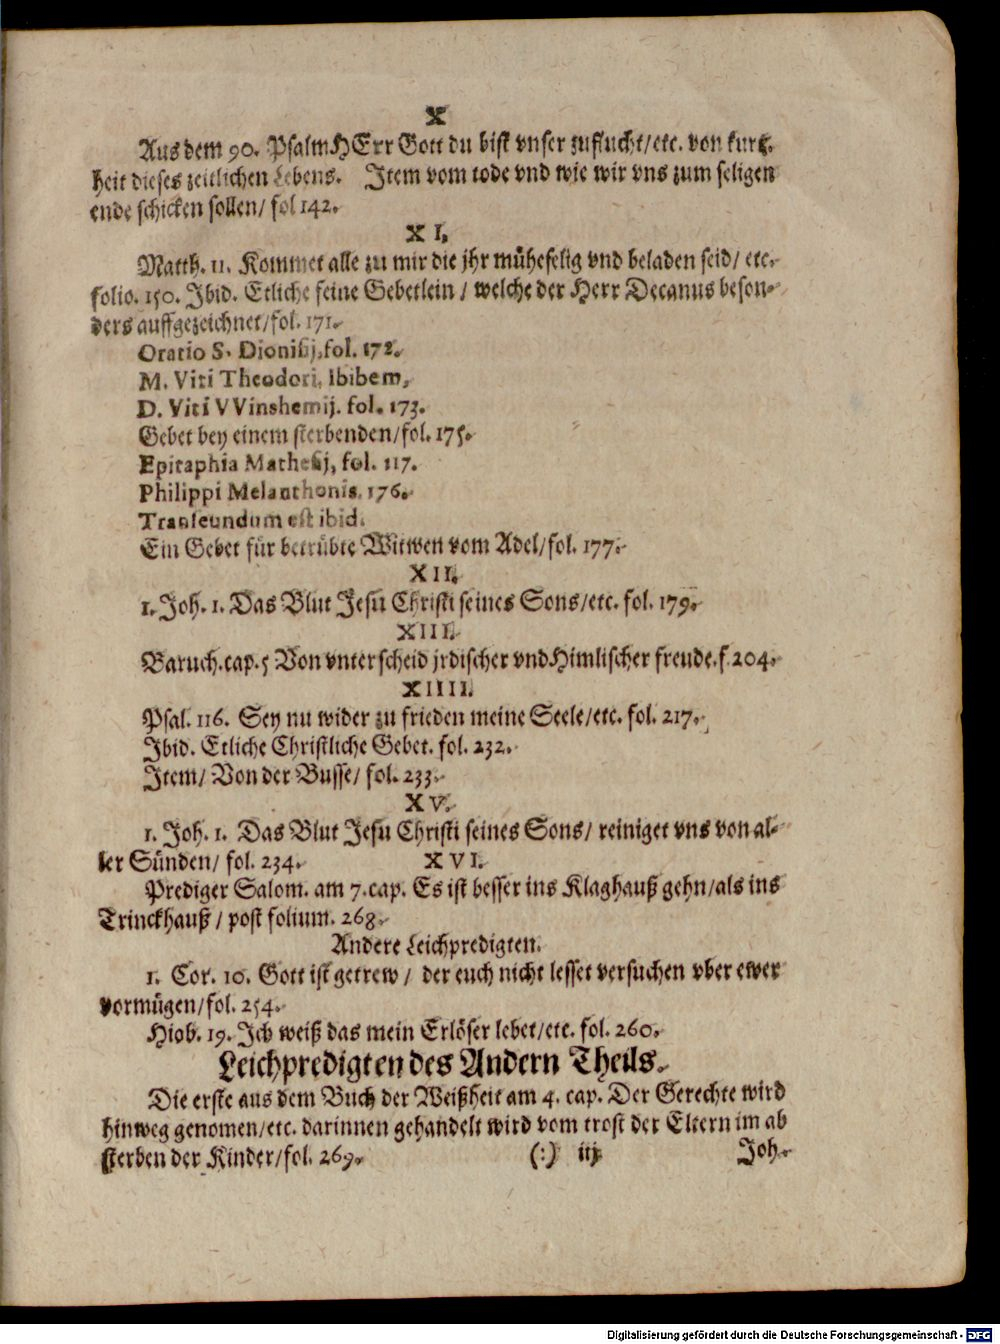 X
Aus dem 90. Psalm HErr Gott du bist vnser zuflucht/etc. von kurtz-
heit dieses zeitlichen Lebens. Item vom tode vnd wie wir vns zum seligen
ende schicken sollen/ fol 142.
XI.
Matth. 11. Kommet alle zu mir die jhr müheselig vnd beladen seid/ etc.
folio. 150. Ibid. Etliche feine Gebetlein / welche der Herr Decanus beson-
ders auffgezeichnet/fol. 171.
Oratio S. Dionisij, fol. 172.
M. Viti Theodori, ibibem,
D. Viti VVinshemij. fol. 173.
Gebet bey einem sterbenden/fol. 175.
Epitaphia Mathesij, fol. 117.
Philippi Melanthonis, 176.
Transeundum est ibid.
Ein Gebet für betrübte Witwen vom Adel/fol. 177.
XII.
1. Joh. 1. Das Blut Jesu Christi seines Sons/etc. fol. 179.
XIII.
Baruch. cap. 5 Von vnterscheid jrdischer vnd Himlischer freude. f. 204.
XIIII.
Psal. 116. Sey nu wider zu frieden meine Seele/etc. fol. 217.
Ibid. Etliche Christliche Gebet. fol. 232.
Item/ Von der Busse/ fol. 233.
XV.
1. Joh. 1. Das Blut Jesu Christi seines Sons/ reiniget vns von al-
ler Sünden/ fol. 234. XVI.
Prediger Salom. am 7. cap. Es ist besser ins Klaghauß gehn/als ins
Trinckhauß / post folium. 268.
Andere Leichpredigten.
1. Cor. 10. Gott ist getrew / der euch nicht lesset versuchen vber ewer
vormügen/fol. 254.
Hiob. 19. Ich weiß das mein Erlöser lebet/etc. fol. 260.
Leichpredigten des Andern Theils.
Die erste aus dem Buch der Weißheit am 4. cap. Der Gerechte wird
hinweg genomen/etc. darinnen gehandelt wird vom trost der Eltern im ab
sterben der Kinder/fol. 269. (:) iij Joh.
Digitalisierung gefördert durch die Deutsche Forschungsgemeinschaft - DFG